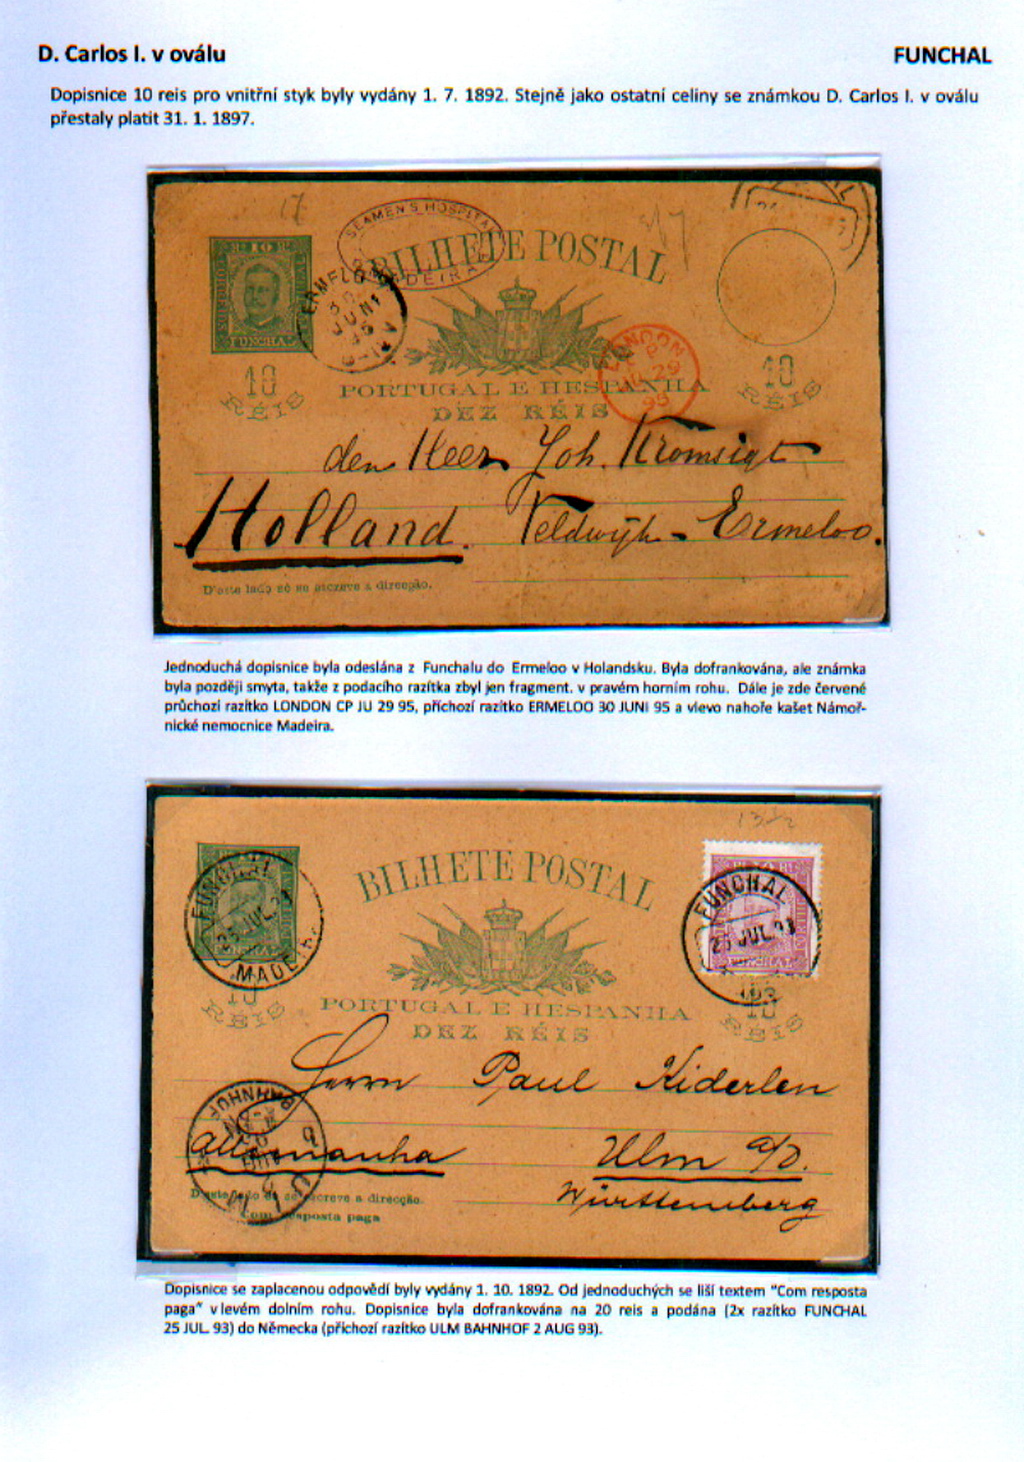 D. Carlos I. v oválu
FUNCHAL
Dopisnice 10 reis pro vnitřní styk byly vydány 1. 7. 1892. Stejně jako ostatní celiny se známkou D. Carlos I. v oválu
přestaly platit 31. 1. 1897.
17
SEAMEN'S HOSPITAL
BILHETE POSTAL
FUNCHAL
ERMELO
LONDON
JU 29
95
10
RÉIS
PORTUGAL E HESPANHA
10
RÉIS
DEZ RÉIS
den Heer Joh. Kromsigt
Holland. Veldwijk - Ermeloo.
D'este lado só se escreve a direcção.
Jednoduchá dopisnice byla odeslána z Funchalu do Ermeloo v Holandsku. Byla dofrankována, ale známka
byla později smyta, takže z podacího razítka zbyl jen fragment. v pravém horním rohu. Dále je zde červené
průchozí razítko LONDON CP JU 29 95, příchozí razítko ERMELOO 30 JUNI 95 a vlevo nahoře kašet Námoř-
nické nemocnice Madeira.
13½
BILHETE POSTAL
FUNCHAL
25 JUL 93
FUNCHAL
25 JUL 93
FUNCHAL
10
RÉIS
PORTUGAL E HESPANHA
10
RÉIS
DEZ RÉIS
Herrn Paul Kiderlen
BAHNHOF
ULM
Allemanha Ulm a/D.
Württemberg
D'este lado só se escreve a direcção.
Com resposta paga
Dopisnice se zaplacenou odpovědí byly vydány 1. 10. 1892. Od jednoduchých se liší textem "Com resposta
paga" v levém dolním rohu. Dopisnice byla dofrankována na 20 reis a podána (2x razítko FUNCHAL
25 JUL. 93) do Německa (příchozí razítko ULM BAHNHOF 2 AUG 93).